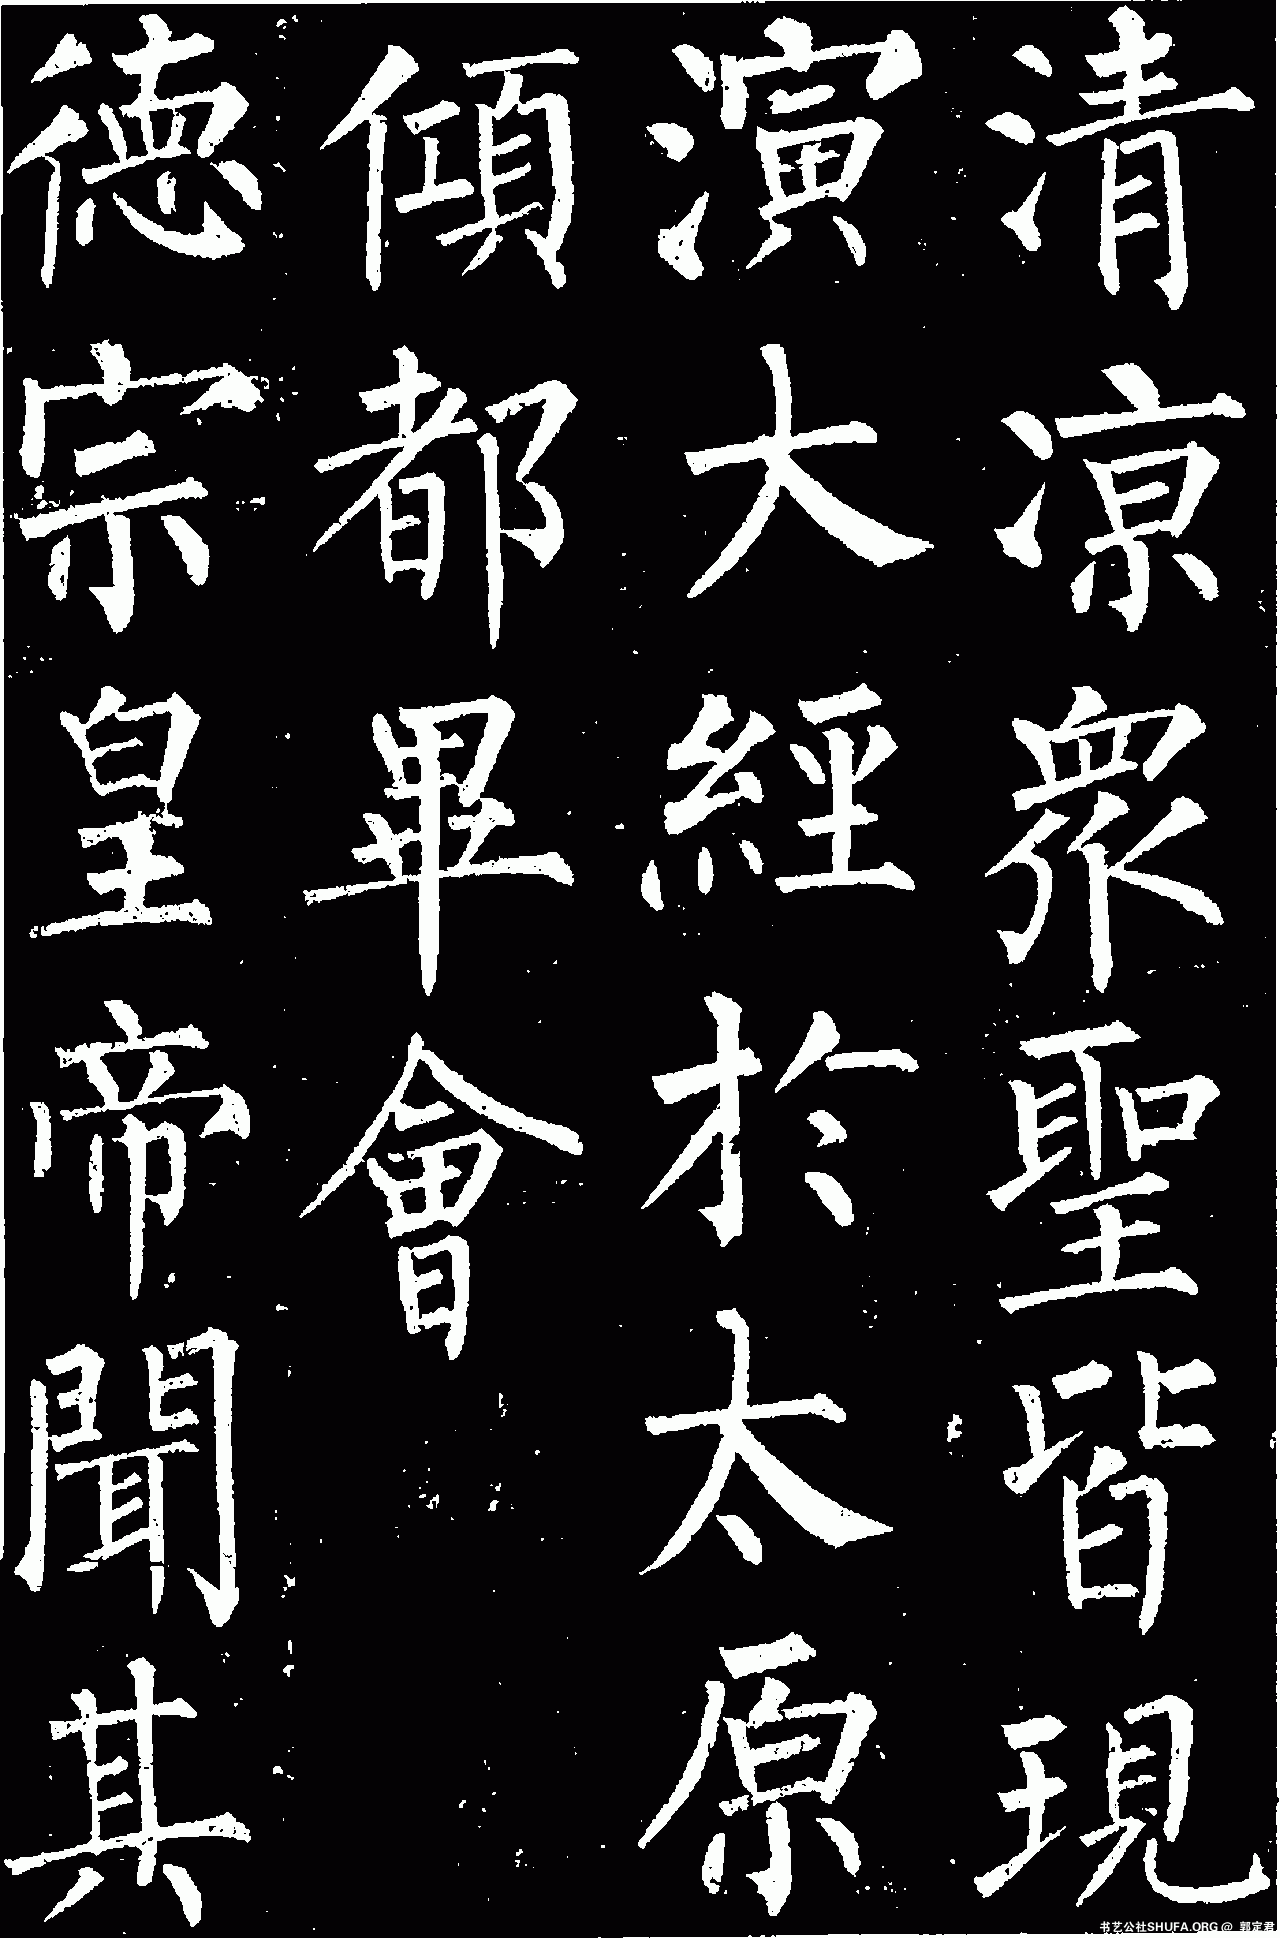 清涼衆聖皆現
演大經於太原
傾都畢會
德宗皇帝聞其
书艺公社SHUFA.ORG @ 郭定君